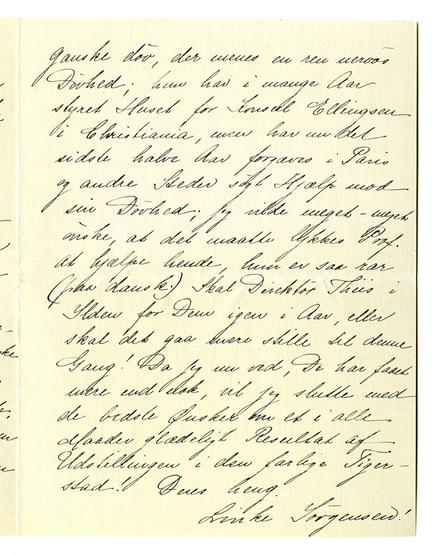 ganske døv, der menes en ren nervøs
Døvhed; hun har i mange Aar
styret Huset for Konsul Ellingsen
i Christiania, men har nu det
sidste halve Aar forgæves i Paris
og andre Steder søgt Hjælp mod
sin Døvhed; jeg vilde meget-meget
ønske, at det maatte lykkes Prof.
at hjælpe hende, hun er saa rar
(paa dansk.) Skal Direktør Thiis i
Ilden for Dem igen i Aar, eller
skal det gaa mere stille til denne
Gang! Da jeg nu ved, De har faaet
mere end nok, vil jeg slutte med
de bedste Ønsker om et i alle
Maader glædeligt Resultat af
Udstillingen i den farlige Tiger-
stad! Deres heng.
Linke Jørgensen!